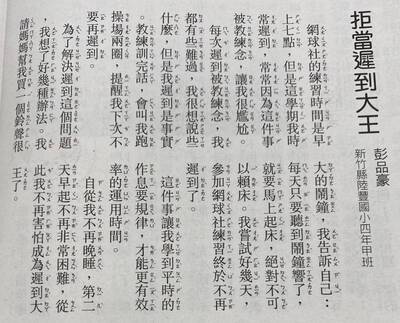 拒當遲到大王
彭品豪
新竹縣陸豐國小四年甲班
網球社的練習時間是早
上七點，但是這學期我時
常遲到，常常因為這件事
被教練念，讓我很尷尬。
每次遲到被教練念，我
都有些難過，我很想說些
什麼，但是我遲到是事實
。教練訓完話，會叫我跑
操場兩圈，提醒我下次不
要再遲到。
為了解決遲到這個問題
，我想了好幾種辦法。我
請媽媽幫我買一個鈴聲很
大的鬧鐘，我告訴自己：
每天只要聽到鬧鐘響了，
就要馬上起床，絕對不可
以賴床。我嘗試好幾天，
參加網球社練習終於不再
遲到了。
這件事讓我學到平時的
作息要規律，才能更有效
率的運用時間。
自從我不再晚睡，第二
天早起不再非常困難，從
此我不再害怕成為遲到大
王了。